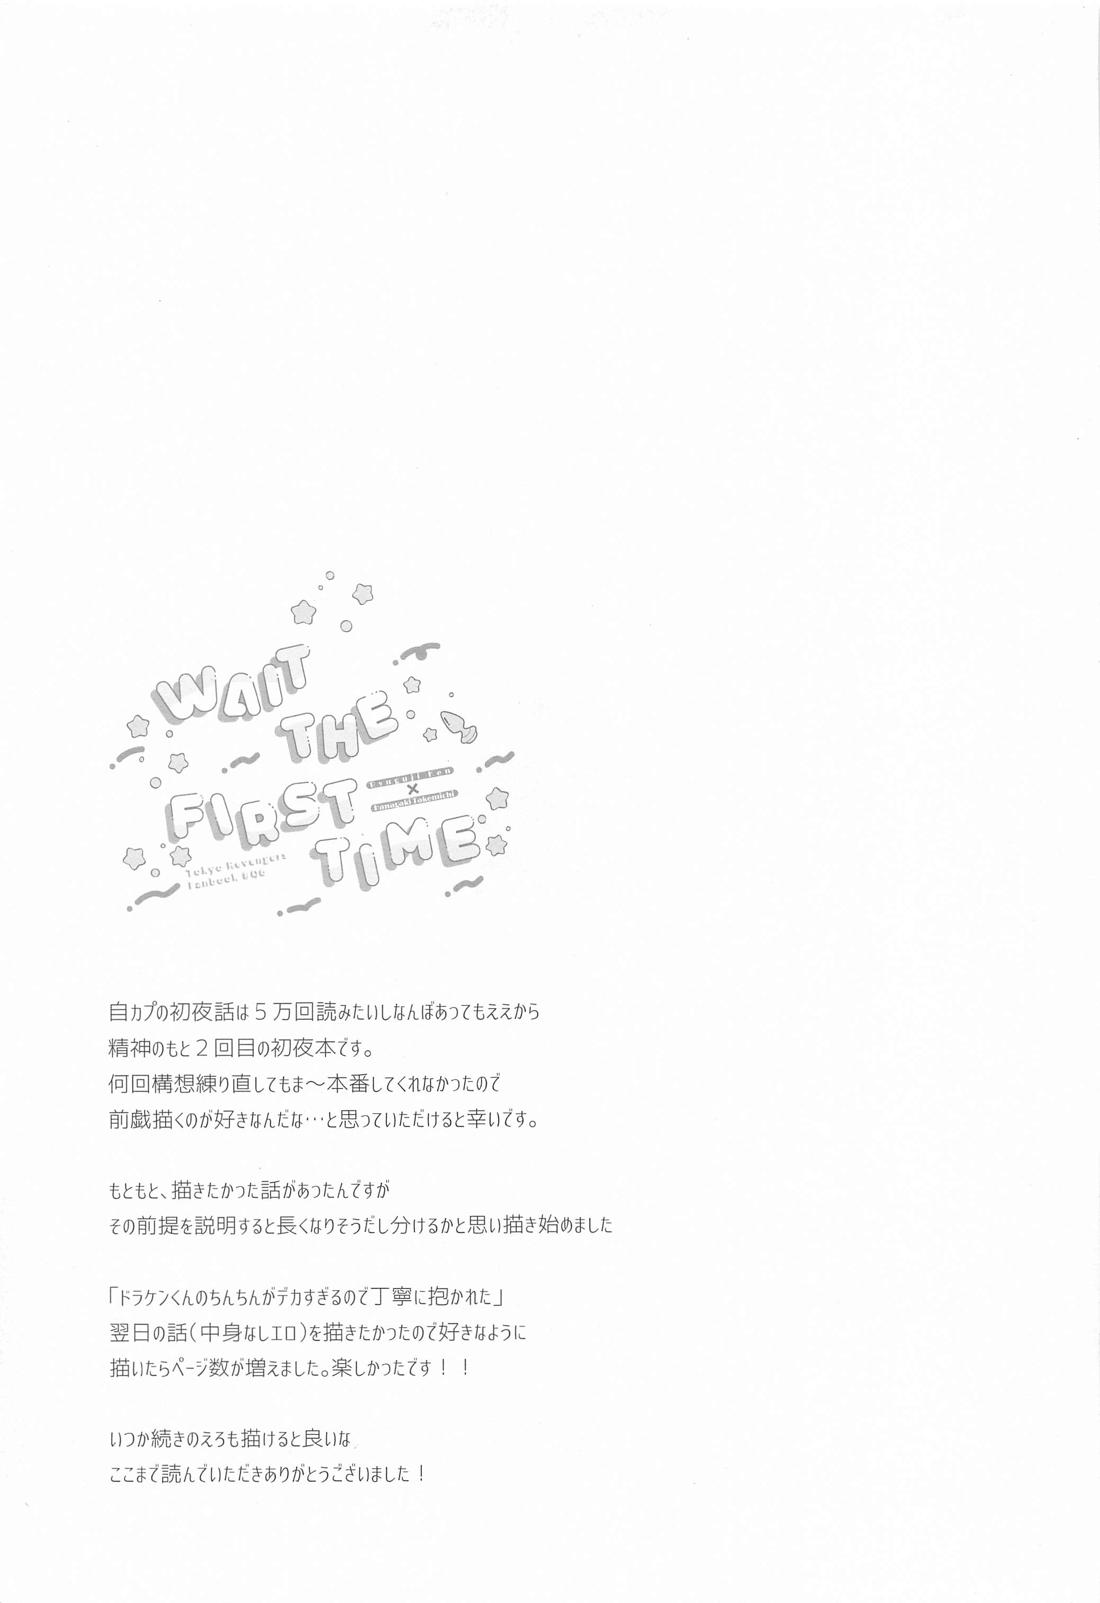 WAIT
THE
FIRST
TIME
Ryuguji Ken
×
Hanagaki Takemichi
Tokyo Revengers
Fanbook
自カプの初夜話は５万回読みたいしなんぼあってもええから
精神のもと２回目の初夜本です。
何回構想練り直してもま〜本番してくれなかったので
前戯描くのが好きなんだな…と思っていただけると幸いです。
もともと、描きたかった話があったんですが
その前提を説明すると長くなりそうだし分けるかと思い描き始めました
「ドラケンくんのちんちんがデカすぎるので丁寧に抱かれた」
翌日の話(中身なしエロ)を描きたかったので好きなように
描いたらページ数が増えました。楽しかったです！！
いつか続きのえろも描けると良いな
ここまで読んでいただきありがとうございました！